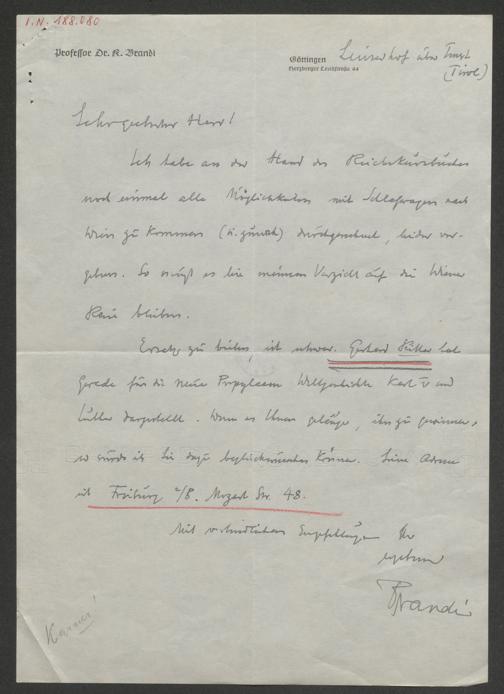 I.N. 188.080
Professor Dr. K. Brandi
Göttingen
Herzberger Landstraße 44
über Imst
(Tirol)
Sehr geehrter Herr!
Ich habe an der Hand des Reichskursbuches
noch einmal alle Möglichkeiten mit Schlafwagen nach
Wien zu kommen (u. zurück) durchgesucht, leider ver-
gebens. So muß es bei meinem Verzicht auf die Wiener
Reise bleiben.
Ersatz zu bieten, ist schwer. Gerhard Ritter hat
gerade für die neue Propylaeen Weltgeschichte Karl V und
Luther dargestellt. Wenn es Ihnen gelänge, ihn zu gewinnen,
so würde ich Sie dazu beglückwünschen können. Seine Adresse
ist Freiburg i/B. Mozart Str. 48.
Mit verbindlichen Empfehlungen Ihr
ergebener
Brandi